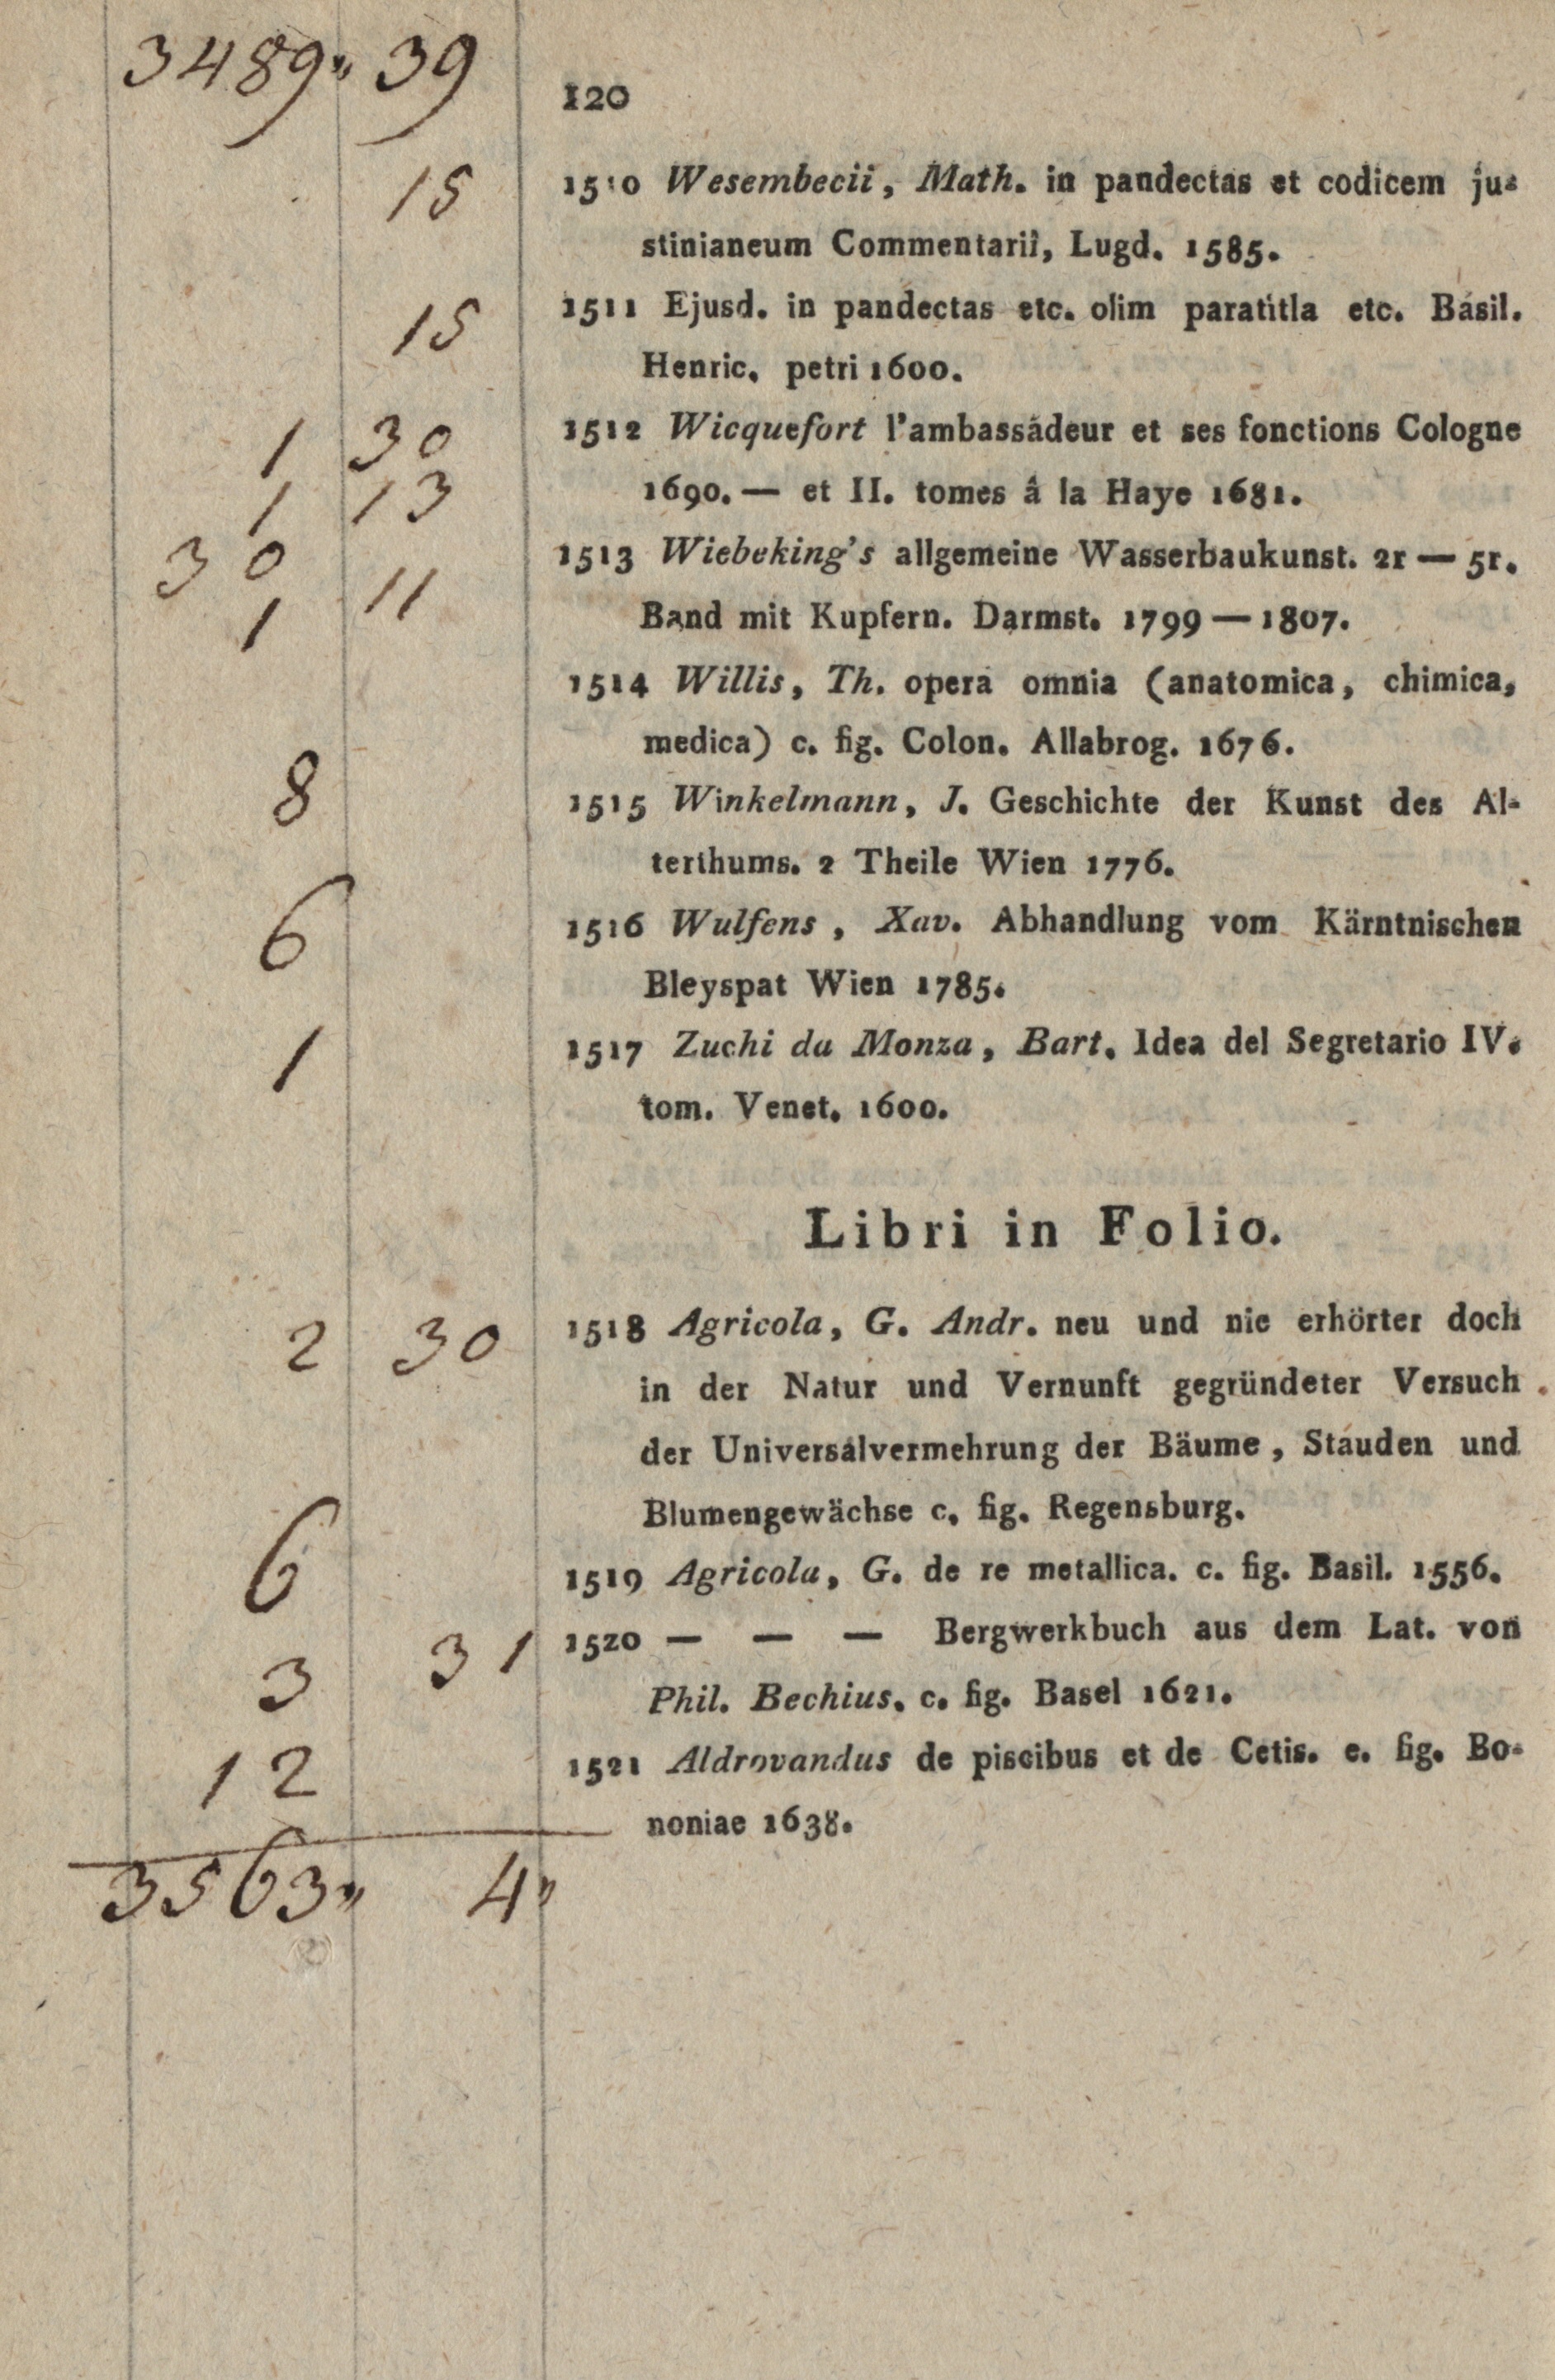 3489" 39
120
15 1510 Wesembecii, Math. in pandectas et codicem ju-
stinianeum Commentarii, Lugd. 1585.
15 1511 Ejusd. in pandectas etc. olim paratitla etc. Basil.
Henric. petri 1600.
1 30 1512 Wicquefort l'ambassadeur et ses fonctions Cologne
1 13 1690. — et II. tomes â la Haye 1681.
30 1513 Wiebeking's allgemeine Wasserbaukunst. 2r — 5r.
1 11 Band mit Kupfern. Darmst. 1799 — 1807.
1514 Willis, Th. opera omnia (anatomica, chimica,
medica) c. fig. Colon. Allabrog. 1676.
8 1515 Winkelmann, J. Geschichte der Kunst des Al-
terthums. 2 Theile Wien 1776.
6 1516 Wulfens, Xav. Abhandlung vom Kärntnischen
Bleyspat Wien 1785.
1 1517 Zuchi da Monza, Bart. Idea del Segretario IV.
tom. Venet. 1600.
Libri in Folio.
2 30 1518 Agricola, G. Andr. neu und nie erhörter doch
in der Natur und Vernunft gegründeter Versuch
der Universalvermehrung der Bäume, Stauden und
Blumengewächse c. fig. Regensburg.
6 1519 Agricola, G. de re metallica. c. fig. Basil. 1556.
3 31 1520 — — — Bergwerkbuch aus dem Lat. von
Phil. Bechius. c. fig. Basel 1621.
12 1521 Aldrovandus de piscibus et de Cetis. e. fig. Bo-
noniae 1638.
3563" 4"